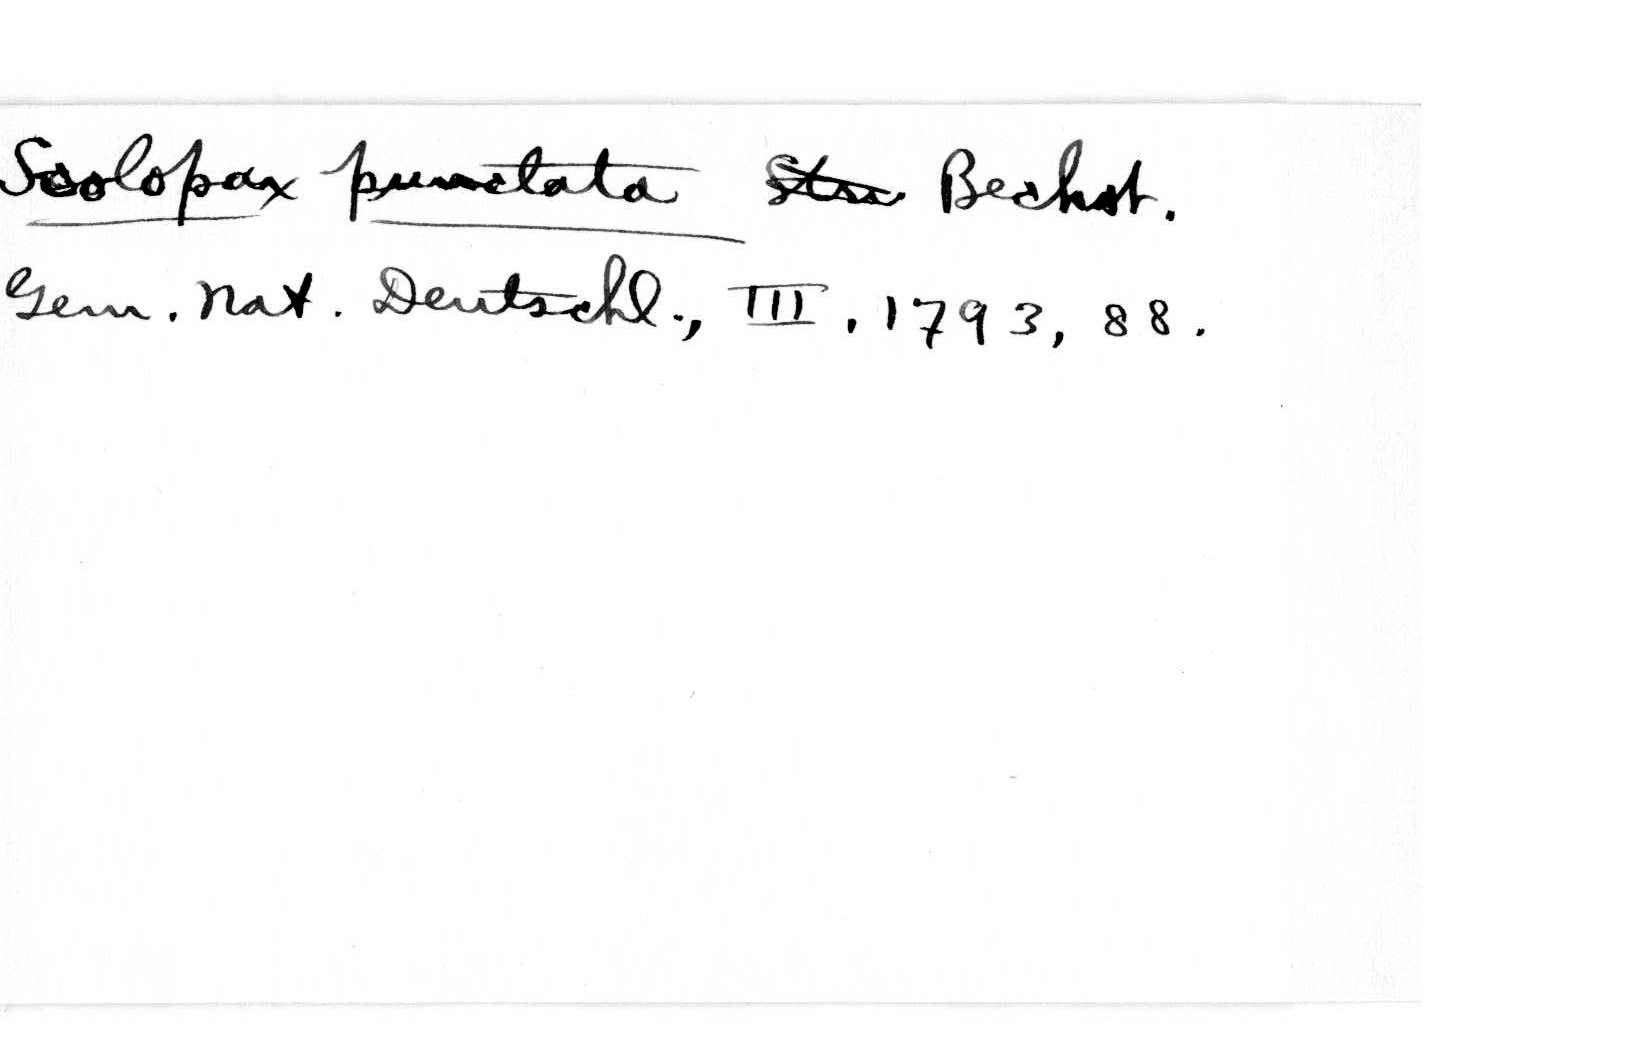 Scolopax punctata Bechst.
Gem. Nat. Deutschl., III, 1793, 88.